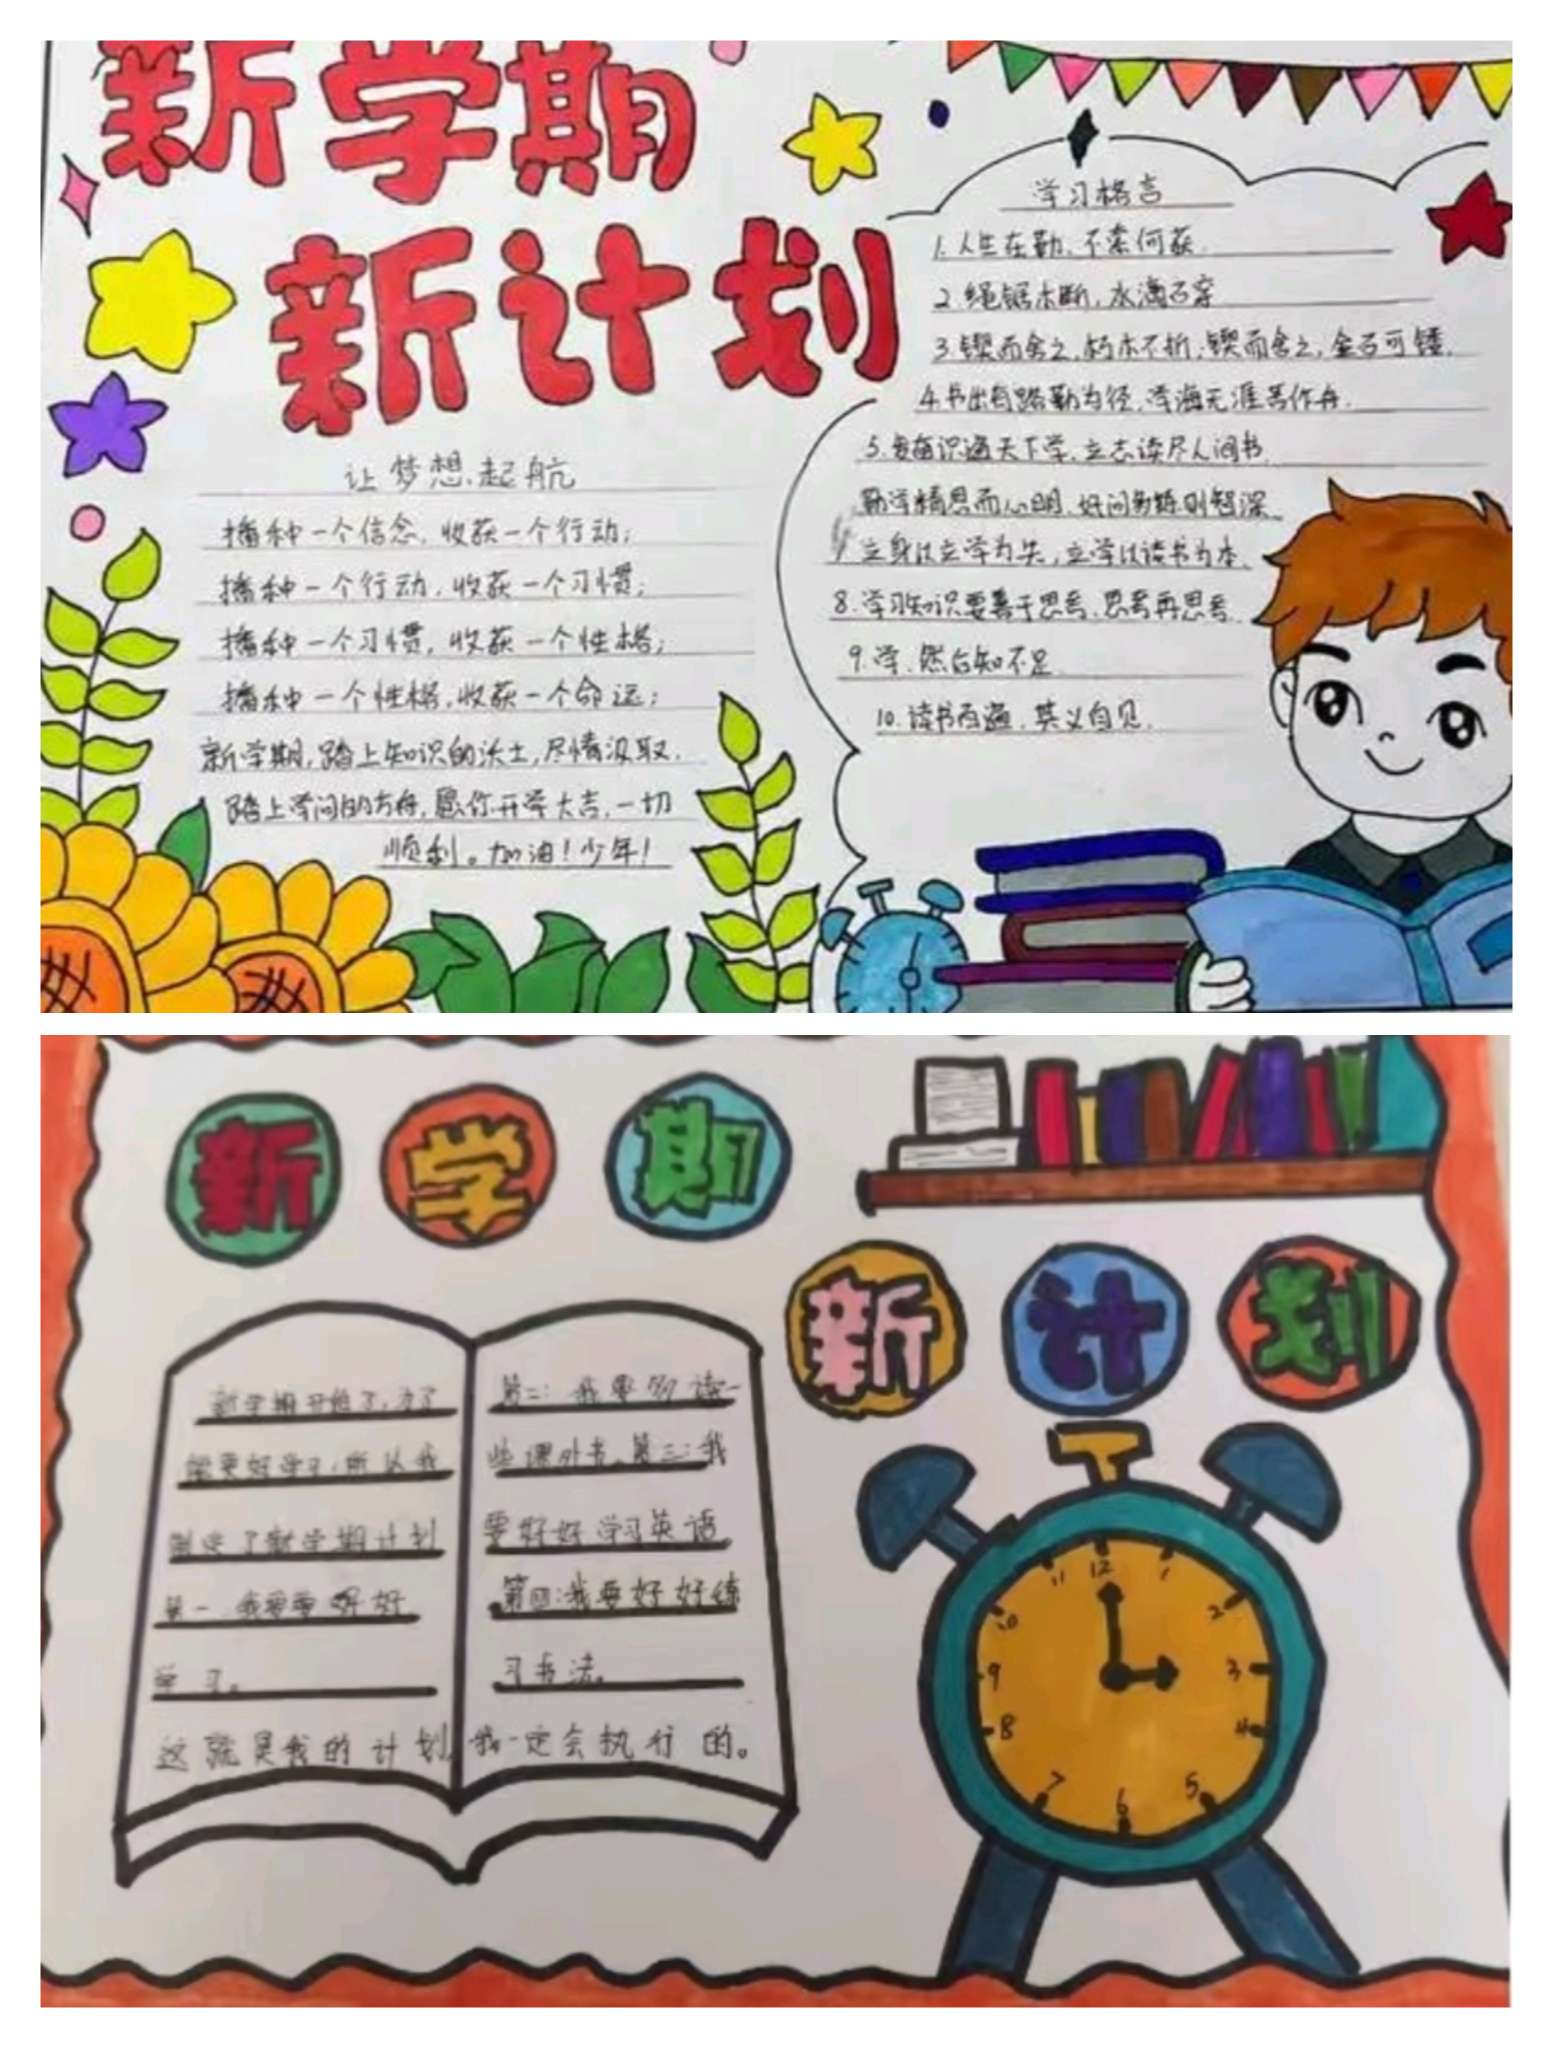 新学期
新计划
让梦想起航
播种一个信念，收获一个行动；
播种一个行动，收获一个习惯；
播种一个习惯，收获一个性格；
播种一个性格，收获一个命运；
新学期，踏上知识的沃土，尽情汲取，
踏上学问的方舟，愿你开学大吉，一切
顺利。加油！少年！
学习格言
1.人生在勤，不索何获
2.绳锯木断，水滴石穿
3.锲而舍之，朽木不折；锲而舍之，金石可镂.
4.书山有路勤为径，学海无涯苦作舟.
5.发奋识遍天下字，立志读尽人间书.
勤学精思而心明，好问多练则智深
立身以立学为先，立学以读书为本.
8.学习知识要善于思考、思考再思考
9.学，然后知不足
10.读书百遍，其义自见.
新学期
新计划
新学期开始了，为了
能更好学习，所以我
制定了新学期计划
第一 我要要好好
学习。
第二：我要多读一
些课外书。第三：我
要好好学习英语
第四：我要好好练
习书法。
这就是我的计划，我一定会执行的。
11 12 1
10 2
9 3
8 4
7 6 5